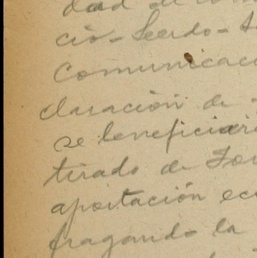 dad de
cio-
Comunicac
claración de
se beneficiar
tirado de
aportación ec
fragando la